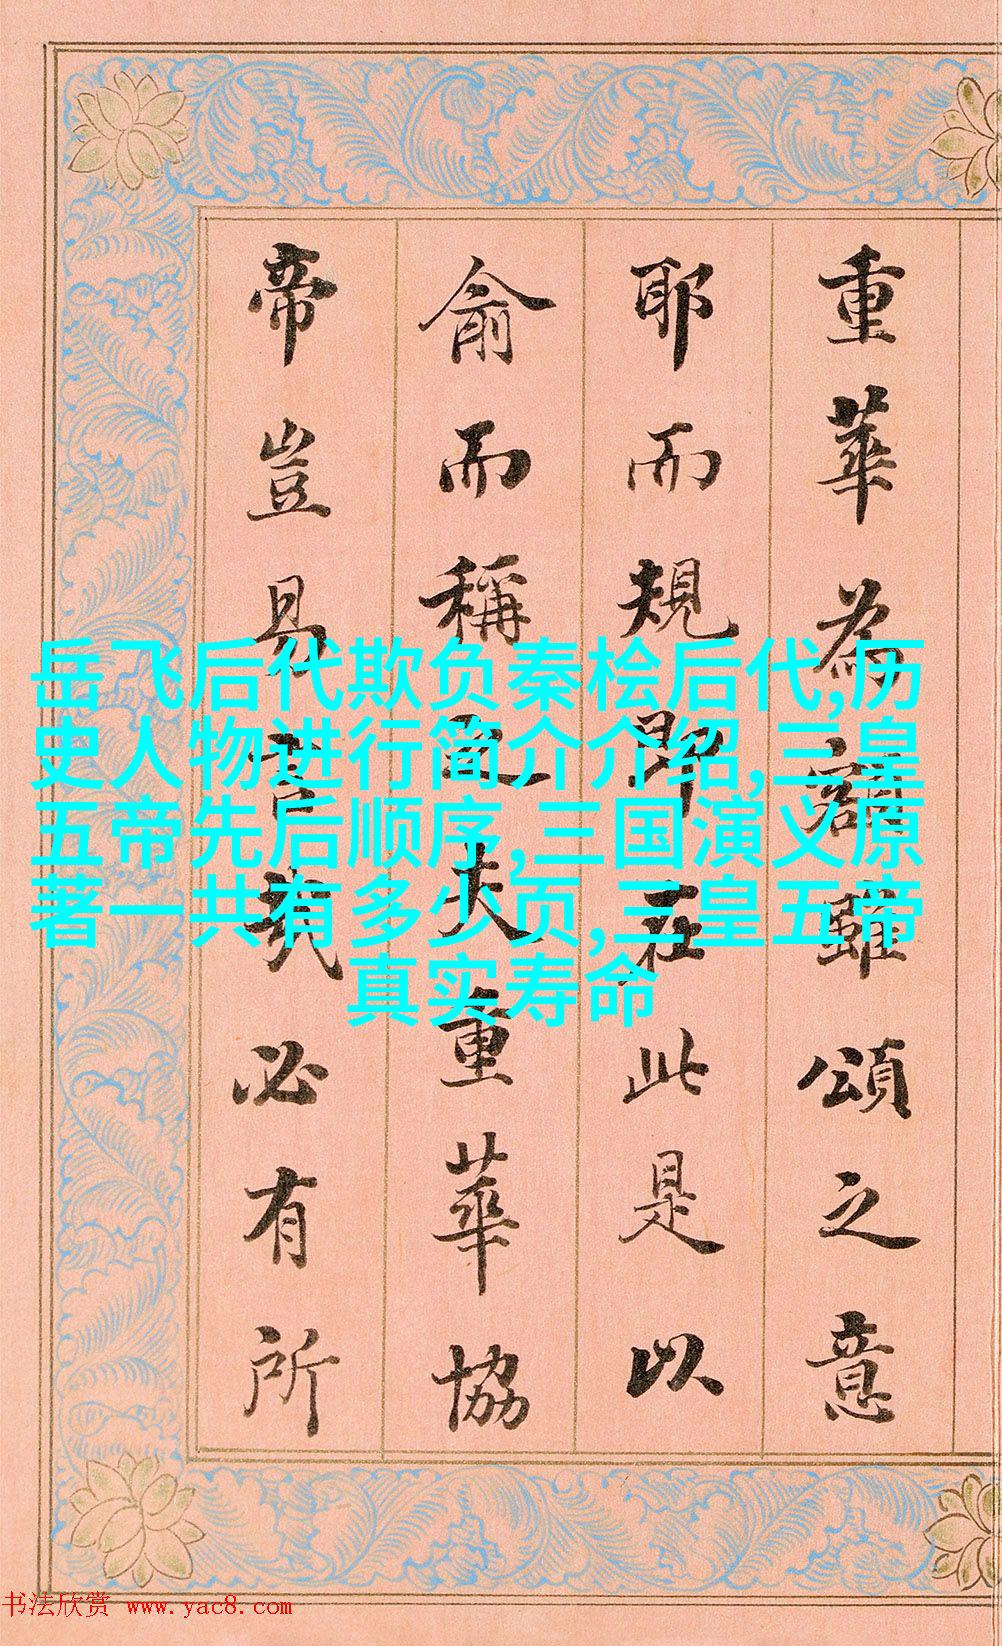 重華為額雖頌之意
耶而規即在此是以
俞而稱之夫重華協
帝豈易言哉必有所
岳飞后代欺负秦桧后代,历
史人物进行简介介绍,三皇
五帝先后顺序,三国演义原
著一共有多少页,三皇五帝
真实寿命
书法欣赏 www.yac8.com